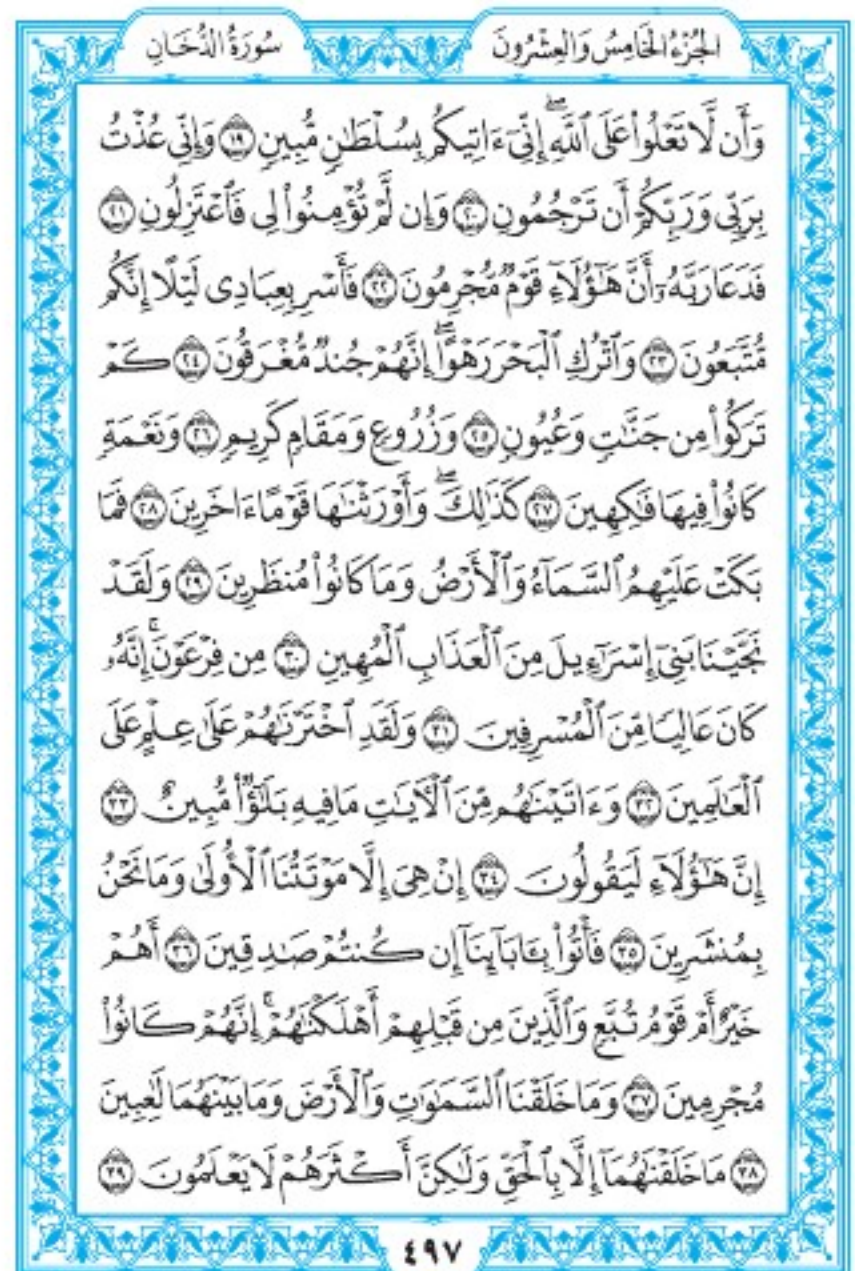 الجُزْءُ الخَامِسُ وَالعِشْرُونَ
سُورَةُ الدُّخَانِ
وَأَن لَّا تَعْلُوا۟ عَلَى ٱللَّهِۖ إِنِّىٓ ءَاتِيكُم بِسُلْطَٰنٍ مُّبِينٍ ١٩ وَإِنِّى عُذْتُ
بِرَبِّى وَرَبِّكُمْ أَن تَرْجُمُونِ ٢٠ وَإِن لَّمْ تُؤْمِنُوا۟ لِى فَٱعْتَزِلُونِ ٢١
فَدَعَا رَبَّهُۥٓ أَنَّ هَٰٓؤُلَآءِ قَوْمٌ مُّجْرِمُونَ ٢٢ فَأَسْرِ بِعِبَادِى لَيْلًا إِنَّكُم
مُّتَّبَعُونَ ٢٣ وَٱتْرُكِ ٱلْبَحْرَ رَهْوًاۖ إِنَّهُمْ جُندٌ مُّغْرَقُونَ ٢٤ كَمْ
تَرَكُوا۟ مِن جَنَّٰتٍ وَعُيُونٍ ٢٥ وَزُرُوعٍ وَمَقَامٍ كَرِيمٍ ٢٦ وَنَعْمَةٍ
كَانُوا۟ فِيهَا فَٰكِهِينَ ٢٧ كَذَٰلِكَۖ وَأَوْرَثْنَٰهَا قَوْمًا ءَاخَرِينَ ٢٨ فَمَا
بَكَتْ عَلَيْهِمُ ٱلسَّمَآءُ وَٱلْأَرْضُ وَمَا كَانُوا۟ مُنظَرِينَ ٢٩ وَلَقَدْ
نَجَّيْنَا بَنِىٓ إِسْرَٰٓءِيلَ مِنَ ٱلْعَذَابِ ٱلْمُهِينِ ٣٠ مِن فِرْعَوْنَۚ إِنَّهُۥ
كَانَ عَالِيًا مِّنَ ٱلْمُسْرِفِينَ ٣١ وَلَقَدِ ٱخْتَرْنَٰهُمْ عَلَىٰ عِلْمٍ عَلَى
ٱلْعَٰلَمِينَ ٣٢ وَءَاتَيْنَٰهُم مِّنَ ٱلْءَايَٰتِ مَا فِيهِ بَلَٰٓؤٌا۟ مُّبِينٌ ٣٣
إِنَّ هَٰٓؤُلَآءِ لَيَقُولُونَ ٣٤ إِنْ هِىَ إِلَّا مَوْتَتُنَا ٱلْأُولَىٰ وَمَا نَحْنُ
بِمُنشَرِينَ ٣٥ فَأْتُوا۟ بِـَٔابَآئِنَآ إِن كُنتُمْ صَٰدِقِينَ ٣٦ أَهُمْ
خَيْرٌ أَمْ قَوْمُ تُبَّعٍ وَٱلَّذِينَ مِن قَبْلِهِمْ أَهْلَكْنَٰهُمْۚ إِنَّهُمْ كَانُوا۟
مُجْرِمِينَ ٣٧ وَمَا خَلَقْنَا ٱلسَّمَٰوَٰتِ وَٱلْأَرْضَ وَمَا بَيْنَهُمَا لَٰعِبِينَ
٣٨ مَا خَلَقْنَٰهُمَآ إِلَّا بِٱلْحَقِّ وَلَٰكِنَّ أَكْثَرَهُمْ لَا يَعْلَمُونَ ٣٩
٤٩٧